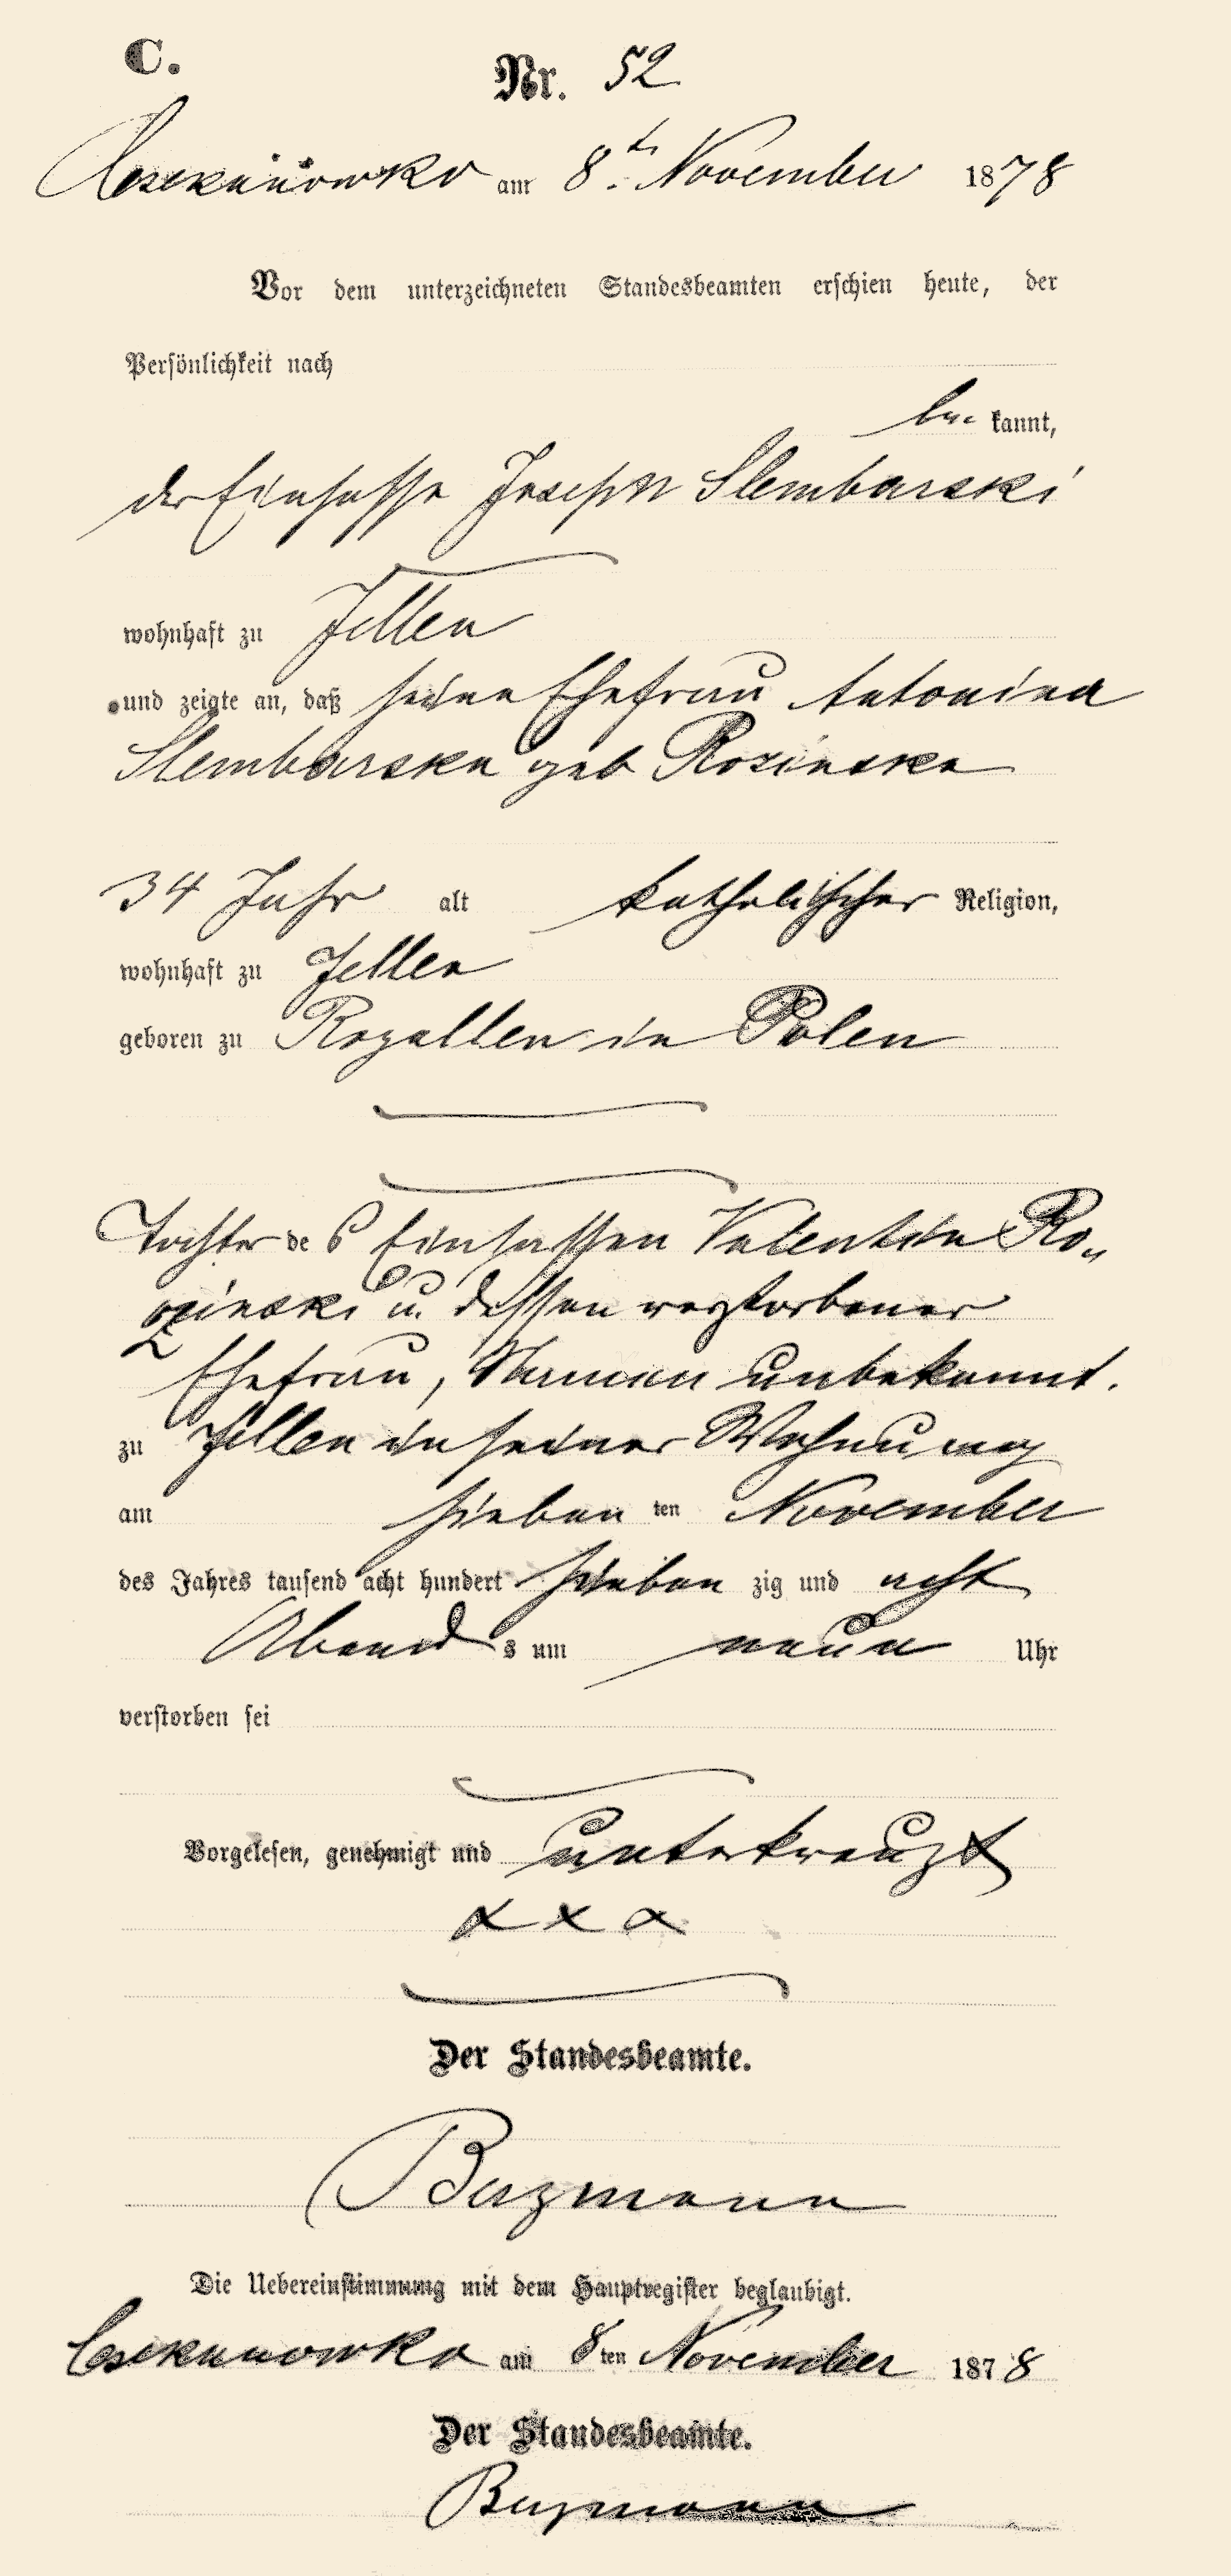 C.
Nr. 52
am 8ten November 1878
Vor dem unterzeichneten Standesbeamten erschien heute, der
Persönlichkeit nach
be kannt,
der Einsasse Joseph Slembarski
wohnhaft zu Jellen
und zeigte an, daß seine Ehefrau Antonina
Slembarska geb Rozinska
34 Jahr alt katholischer Religion,
wohnhaft zu Jellen
geboren zu Rogallen in Polen
Tochter des Einsassen Valentin Ro„
zinski u. dessen verstorbener
Ehefrau, Namen unbekannt.
zu Jellen in seiner Wohnung
am sieben ten November
des Jahres tausend acht hundert sieben zig und acht
Abend s um neun Uhr
verstorben sei
Vorgelesen, genehmigt und unterkreuzt
x x x
Der Standesbeamte.
Bergmann
Die Uebereinstimmung mit dem Hauptregister beglaubigt.
Czekanowko am 8 ten November 1878
Der Standesbeamte.
Bergmann